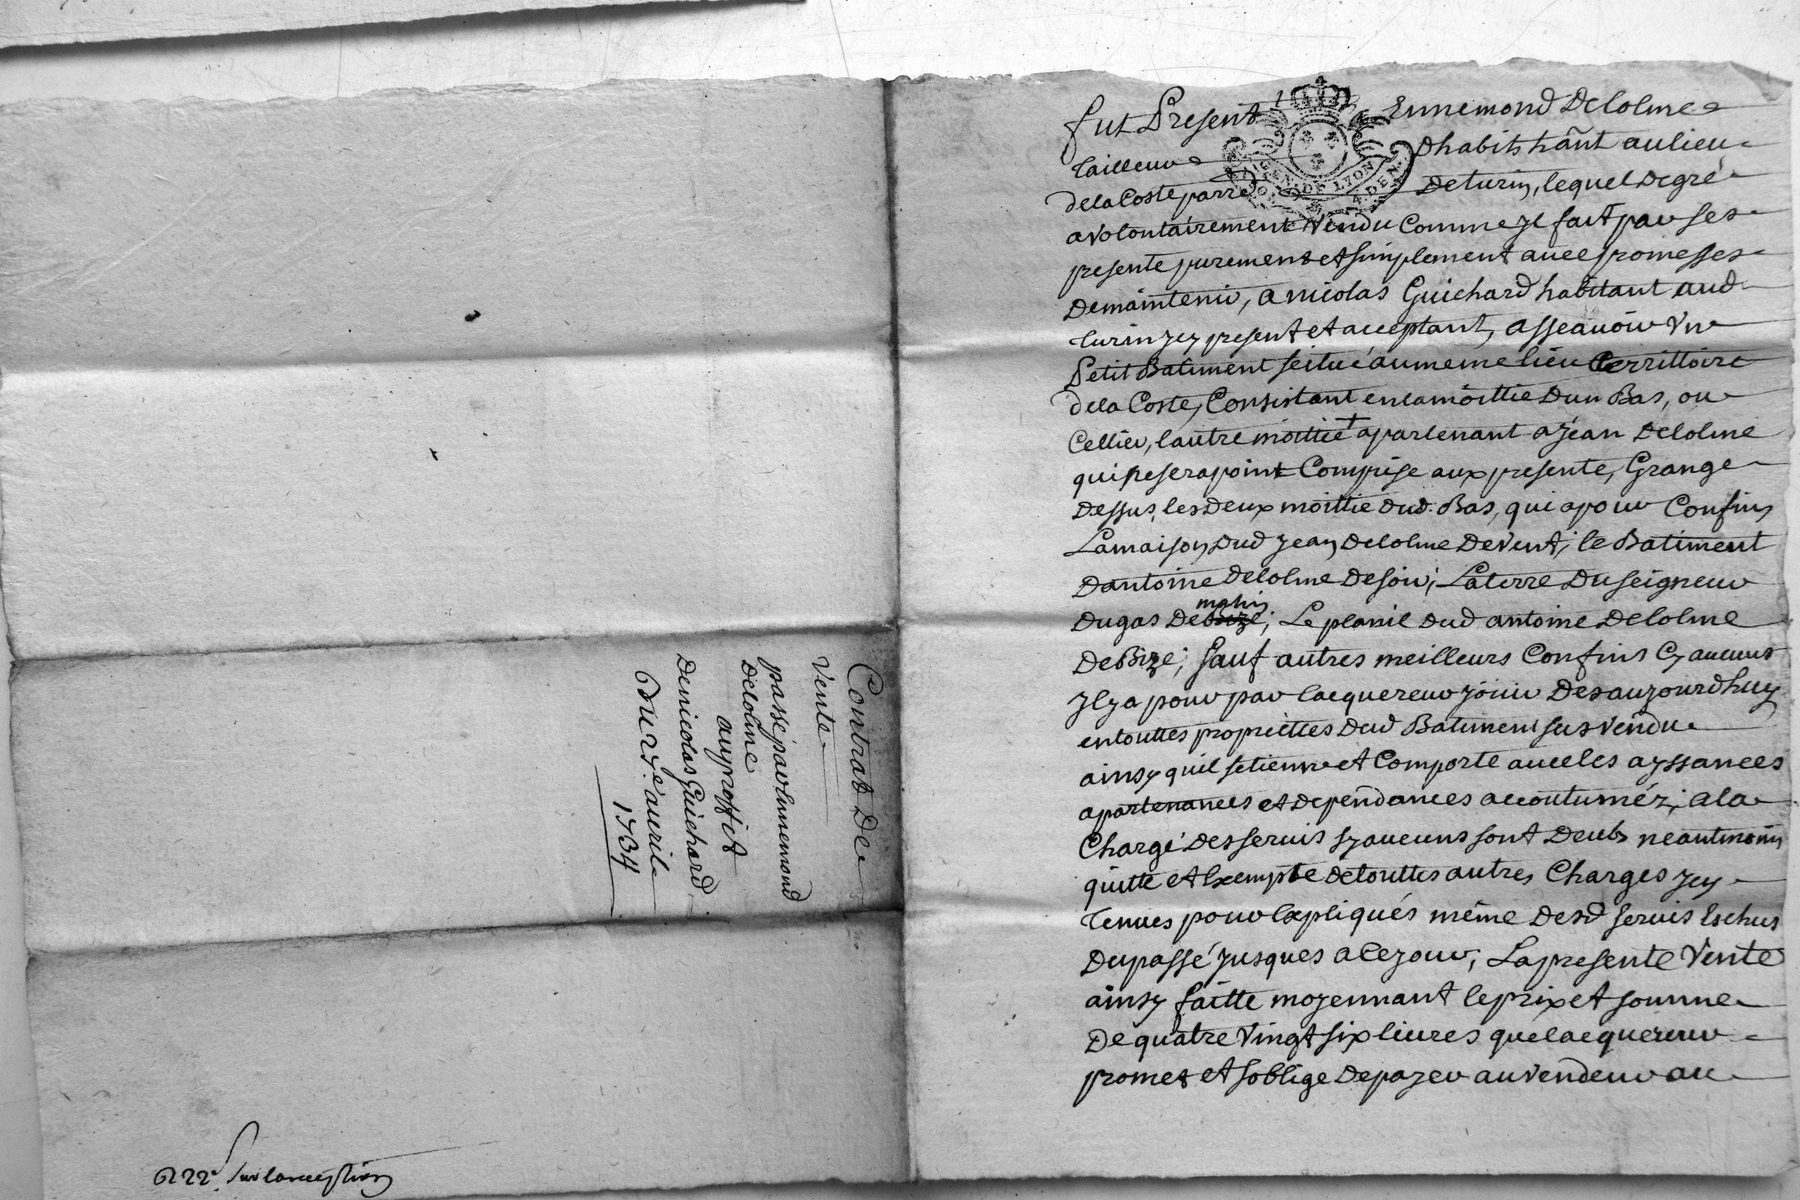 Contrat De
Vente
passé par Ennemond
Delolme
au proffit
De nicolas Guichard
Du 27e auril
1734
6122e Sur
fut Present Ennemond Delolme
tailleur Dhabits hãnt au lieu
GEN. DE LYON
DEN.
de la Coste parre De turin, lequel De gré
a volontairement Vendu Comme Jl fait par ses
presente purement et simplement auec promesses
De maintenir, a nicolas Guichard habitant aud
turin Jcy present et acceptant, assauoir Vn
Petit Batiment scitué au meme lieu territtoire
de la Coste, Consistant en la moittie Dun Bas, ou
Cellier, l'autre moittie apartenant a Jean Delolme
qui ne sera point Comprise aux presente, Grange
Dessus, les Deux moittie dud. Bas, qui a pour Confins
La maison Dud Jean Delolme De Vent; le Batiment
Dantoine Delolme De soir; La terre Du seigneur
matin
Dugas De bize; Le planil dud antoine Delolme
De Bize; sauf autres meilleurs Confins sy aucuns
Jl y a pour par lacquereur Jouir Des aujourdhuy
en touttes propriettés Dud Batiment sus vendu
ainsy quil se tienne et Comporte auec les ayssances
apartenances et dependances accoutuméz; a la
Charge Des seruis sy aucuns sont Deubs neantmoins
quitte et Exempte de touttes autres Charges Jcy
tenues pour Expliqués même Desd seruis Eschus
Du passé Jusques a Ce jour; La presente Vente
ainsy faitte moyennant le prix et somme
De quatre Vingt six liures que lacquereur
promet et soblige De payer au vendeur au